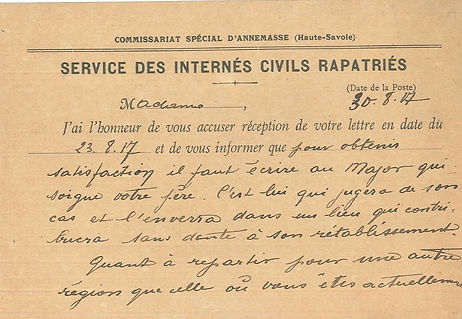 COMMISSARIAT SPÉCIAL D'ANNEMASSE (Haute-Savoie)
SERVICE DES INTERNÉS CIVILS RAPATRIÉS
(Date de la Poste)
Madame, 30.8.17
J'ai l'honneur de vous accuser réception de votre lettre en date du
23.8.17 et de vous informer que pour obtenir
satisfaction il faut écrire au Major qui
soigne votre père. C'est lui qui jugera de son
cas et l'enverra dans un lieu qui contri-
buera sans doute à son rétablissement.
Quant à repartir pour une autre
région que celle où vous êtes actuellement